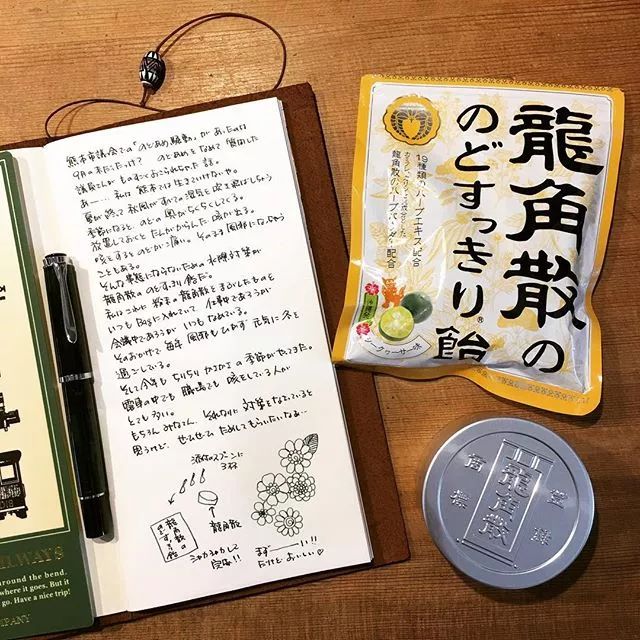 熊本市議会での「のどあめ騒動」があったのは
9月の末だったっけ？ のどあめをなめて質問した
議員さんがものすごくおこられちゃった話。
あー…、私は熊本では生きていけないや。
夏が終って秋風がすべての湿気を吹き飛ばしちゃう
季節になると、のどの奥がちくちくしてくる。
放置しておくとだんだんからんだ咳が出る。
咳をするとのどが痛い。そのうち風邪になっちゃう
こともある。
そんな事態にならないための私の対策が
龍角散ののどすっきり飴だ。
私はこれに粉末の龍角散をまぶしたものを
いつもbagに入れていて、仕事であろうが
会議中であろうがいつもなめている。
そのおかげで毎年風邪もひかず元気に冬を
過ごしている。
そして今年もちりちりかさかさの季節がやってきた。
電車の中でも職場でも咳をしている人が
とても多い。
もちろんみなさん、それなりに対策をなさっていると
思うけど、ぜひぜひためしてもらいたいなぁ…
添付のスプーンに
3杯
龍角散
龍角散の
のどすっきり飴
シャカシャカして
完成!!
まずーい!!
だけどおいしい♡
龍角散の
のどすっきり®飴
19種類のハーブエキス配合
龍角散のハーブパウダー配合
シークヮーサー味
龍角散
around the bend.
where it goes. But it
go. Have a nice trip!